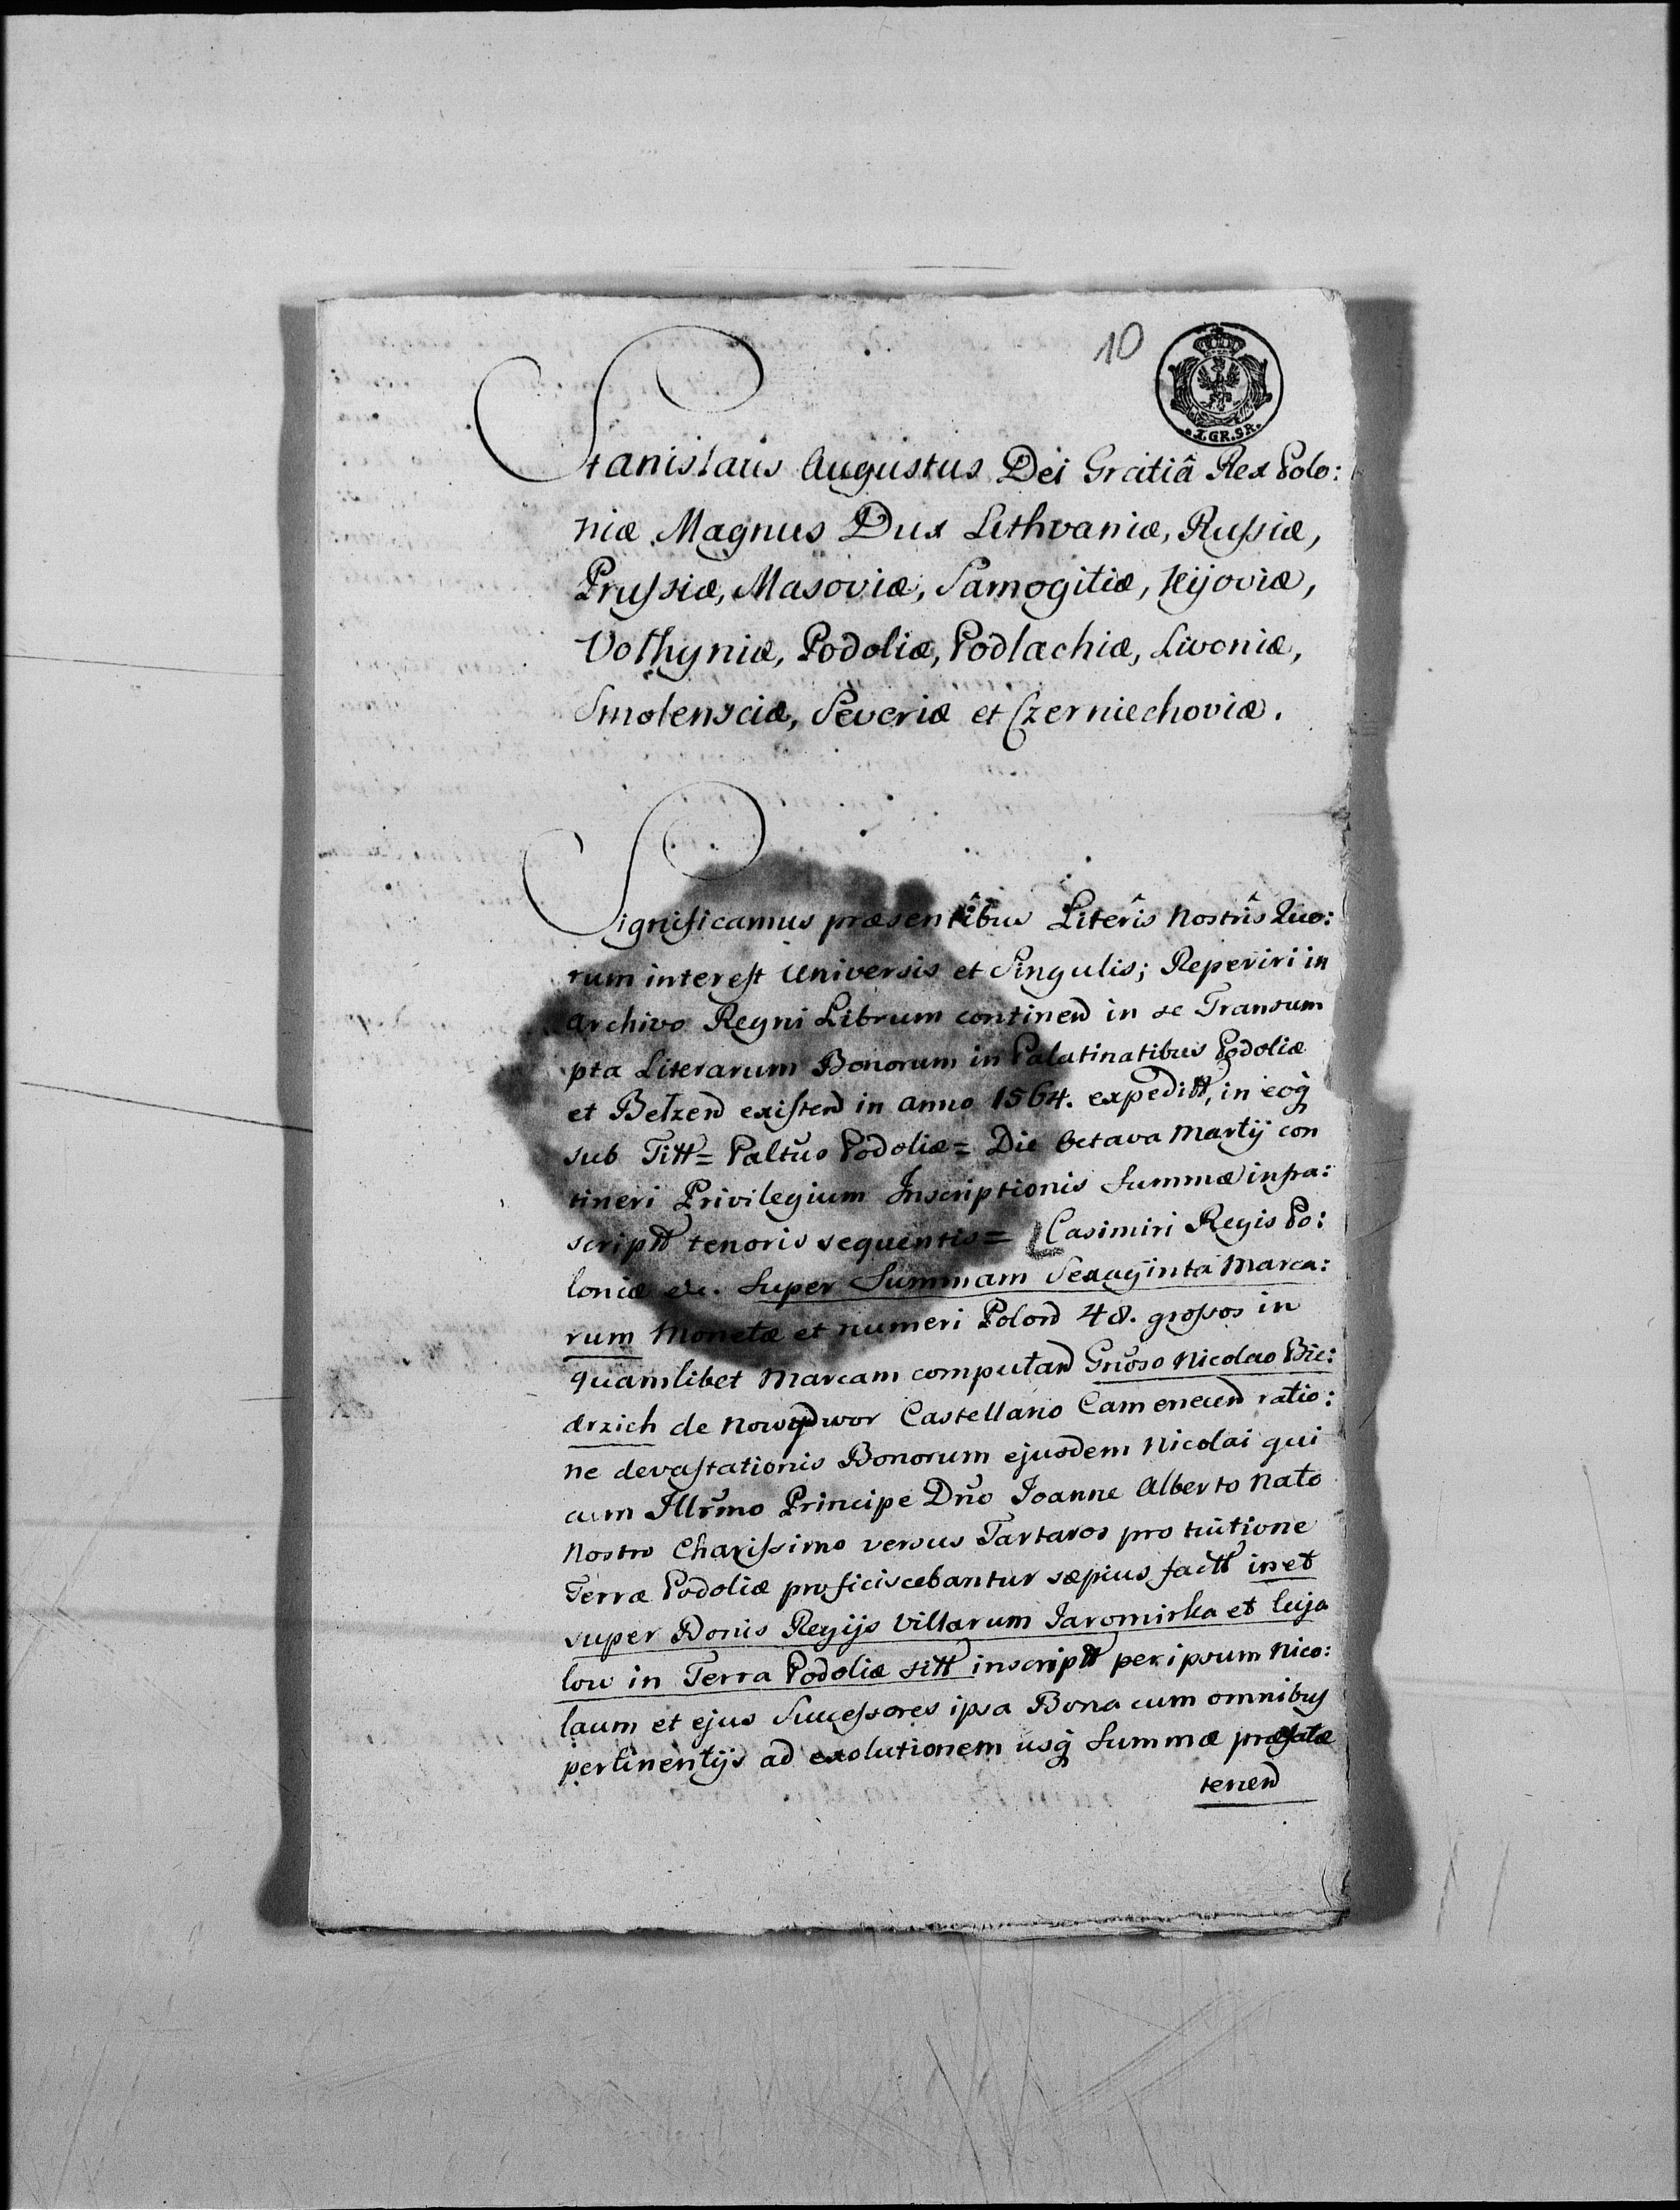 10
.I.GR.SR.
Stanislaus Augustus Dei Gratiâ Rex Polo:
niæ Magnus Dux Lithvaniæ, Russiæ,
Prussiæ, Masoviæ, Samogitiæ, Kijoviæ,
Volhyniæ, Podoliæ, Podlachiæ, Livoniæ,
Smolensciæ, Severiæ et Czerniechoviæ.
Significamus præsentibus Literis Nostris Quo:
rum interest Universis et Singulis; Reperiri in
Archivo Regni Librum continen in se Transum
pta Literarum Bonorum in Palatinatibus Podoliæ
et Belzen existen in anno 1564. expeditt, in eoq
sub Titt= Paltuo Podoliæ= Die Octava Martij con
tineri Privilegium Inscriptionis Summæ infra:
scriptt tenoris sequentis= Casimiri Regis Po:
loniæ etc. Super Summam Sexaginta Marca:
rum Monetæ et numeri Polon 48. grossos in
quamlibet Marcam computan Gnoso Nicolao Bie:
drzich de Nowydwor Castellano Camenecen ratio:
ne devastationis Bonorum ejusdem Nicolai qui
cum Illrmo Principe Dno Joanne Alberto Nato
Nostro Charissimo versus Tartaros pro tuitione
Terræ Podoliæ proficiscebantur sæpius factt in et
super Bonis Regijs Villarum Jaromirka et Cuja
low in Terra Podoliæ sitt inscriptt per ipsum Nico:
laum et ejus Successores ipsa Bona cum omnibus
pertinentijs ad exolutionem usq Summæ præfatæ
tenen